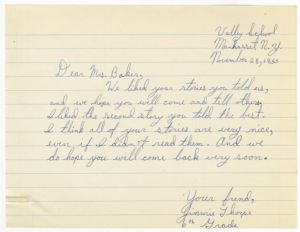 Vally School
Manhasset N.Y.
November 28, 1955
Dear Mrs. Baker,
We liked your stories you told us,
and we hope you will come and tell others.
I liked the second story you told the best.
I think all of your stories are very nice,
even if I didn't read them. And we
do hope you will come back very soon.
Your friend,
Jimmie Thorpe
6th Grade